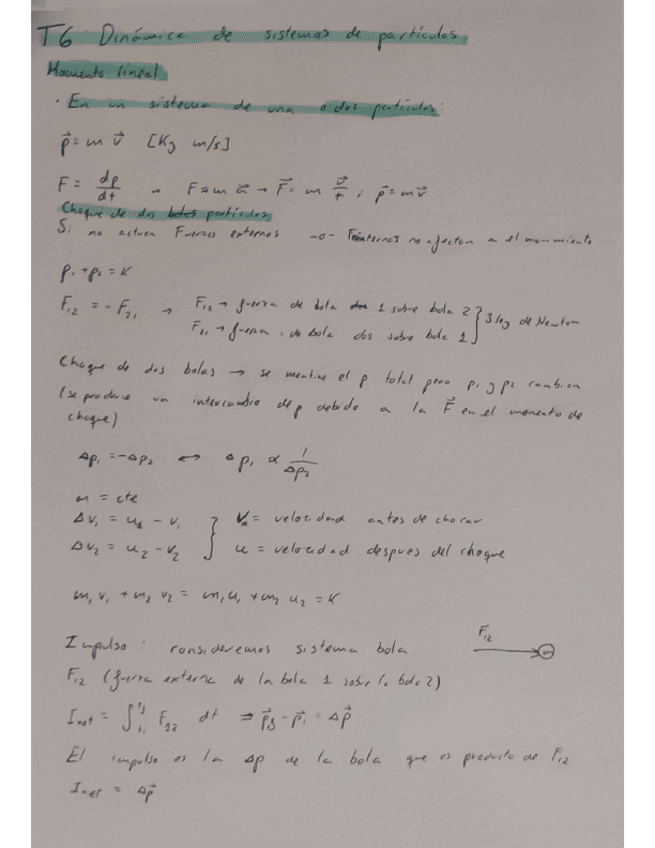 T6 Dinámica de sistemas de partículas
Momento lineal
· En un sistema de una o dos partículas:
p⃗ = m v⃗ [Kg m/s]
F = dp/dt → F = m a → F⃗ = m v⃗/t ; p⃗ = m v⃗
Choque de dos partículas
Si no actuan Fuerzas externas → F internas no afectan a el movimiento
p₁ + p₂ = K
F₁₂ = - F₂₁ → F₁₂ → fuerza de bola 1 sobre bola 2 } 3 ley de Newton
F₂₁ → fuerza de bola dos sobre bola 1
Choque de dos bolas → se mantine el p total pero p₁ y p₂ cambian
(se produce un intercambio de p debido a la F⃗ en el momento de
choque)
Δp₁ = -Δp₂ ↔ Δp₁ ∝ 1/Δp₂
m = cte
Δv₁ = u₁ - v₁ } v = velocidad antes de chocar
Δv₂ = u₂ - v₂ u = velocidad despues del choque
m₁ v₁ + m₂ v₂ = m₁ u₁ + m₂ u₂ = K
Impulso: consideremos sistema bola
F₁₂
F₁₂ (fuerza externa de la bola 1 sobre la bola 2)
I net = ∫ F₁₂ dt ⇒ p⃗f - p⃗i = Δp⃗
El impulso es la Δp de la bola que es producto de F₁₂
I net = Δp⃗